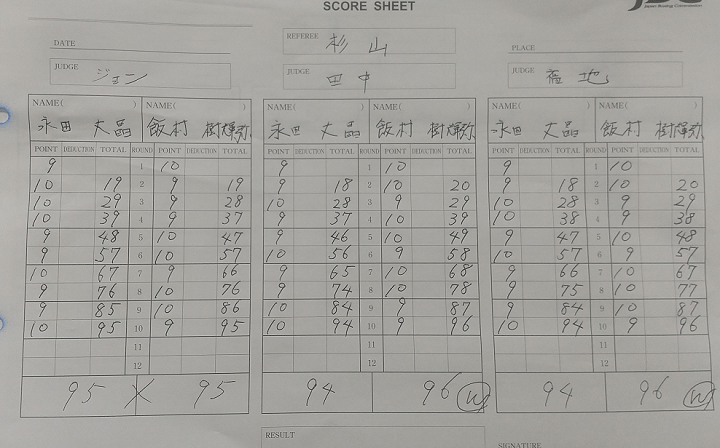 SCORE SHEET
Japan Boxing Commission
DATE
REFEREE 杉山
PLACE
JUDGE ジェン
JUDGE 田中
JUDGE 福地
NAME( ) NAME( ) NAME( ) NAME( ) NAME( ) NAME( )
永田 丈晶 飯村 樹輝弥 永田 丈晶 飯村 樹輝弥 永田 丈晶 飯村 樹輝弥
POINT DEDUCTION TOTAL ROUND POINT DEDUCTION TOTAL POINT DEDUCTION TOTAL ROUND POINT DEDUCTION TOTAL POINT DEDUCTION TOTAL ROUND POINT DEDUCTION TOTAL
9 1 10 9 1 10 9 1 10
10 19 2 9 19 9 18 2 10 20 9 18 2 10 20
10 29 3 9 28 10 28 3 9 29 10 28 3 9 29
10 39 4 9 37 9 37 4 10 39 10 38 4 9 38
9 48 5 10 47 9 46 5 10 49 9 47 5 10 48
9 57 6 10 57 10 56 6 9 58 10 57 6 9 57
10 67 7 9 66 9 65 7 10 68 9 66 7 10 67
9 76 8 10 76 9 74 8 10 78 9 75 8 10 77
9 85 9 10 86 10 84 9 9 87 9 84 9 10 87
10 95 10 9 95 10 94 10 9 96 10 94 10 9 96
11 11 11
12 12 12
95 × 95 94 96 W 94 96 W
RESULT
SIGNATURE